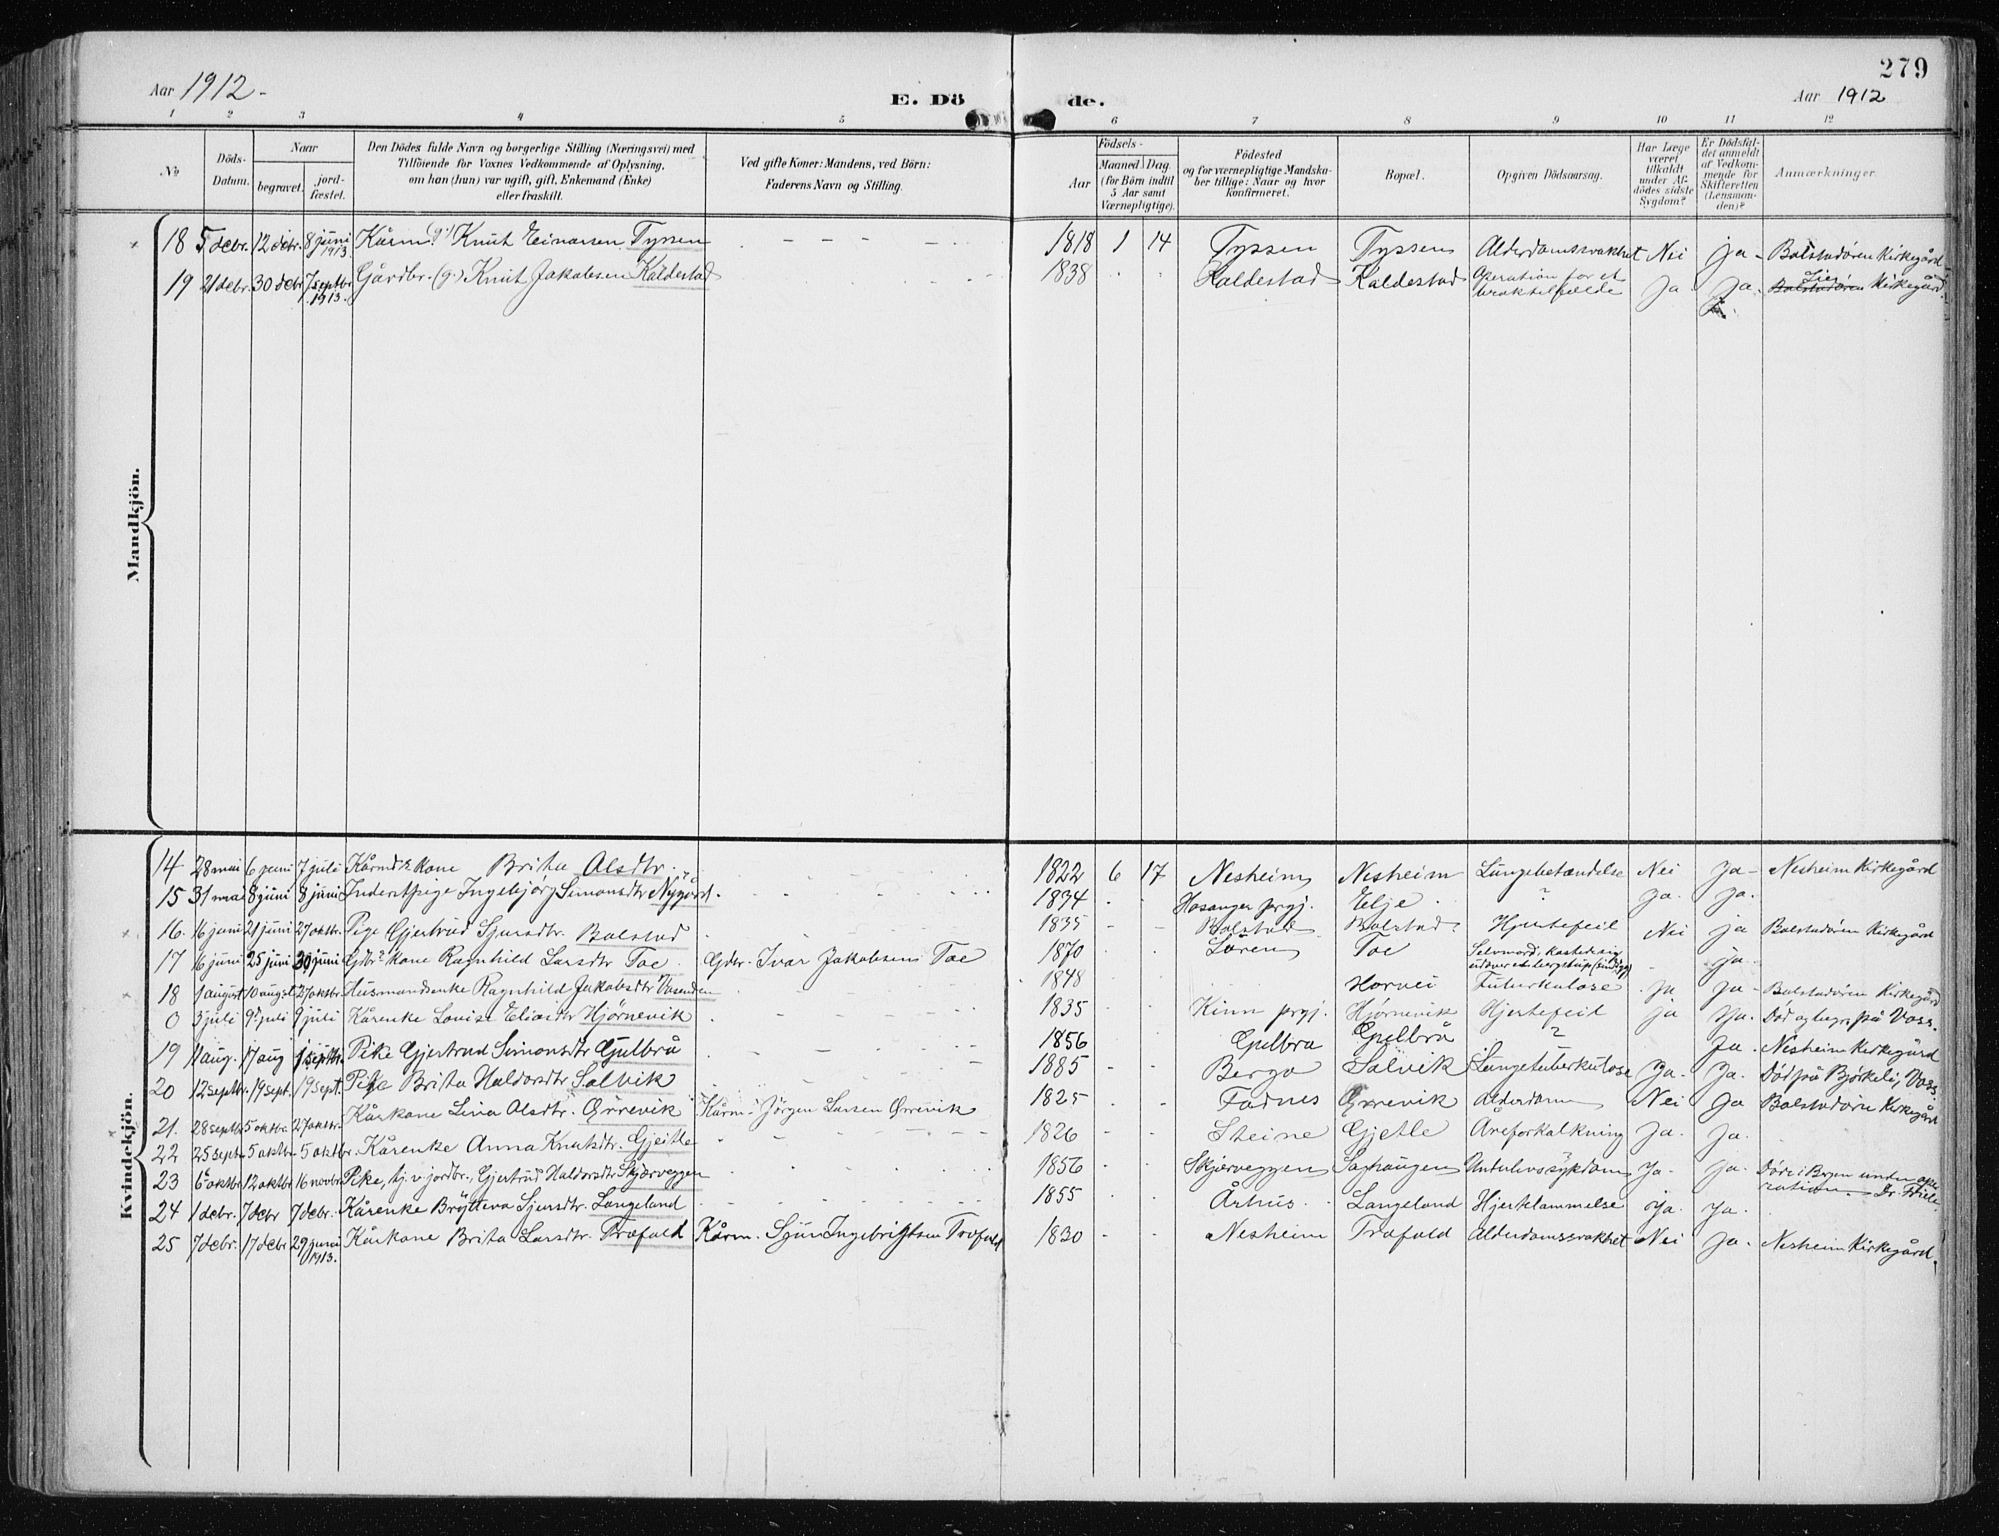 279
Aar 1912-
E. Dö de.
Aar 1912
1 2 3 4 5 6 7 8 9 10 11 12
No
Döds-Datum.
Naar
begravet.
jordfæstet.
Den Dödes fulde Navn og borgerlige Stilling (Næringsvei) med Tilföiende for Voxnes Vedkommende af Oplysning, om han (hun) var ugift, gift, Enkemand (Enke) eller fraskilt.
Ved gifte Koner: Mandens, ved Börn: Faderens Navn og Stilling.
Födsels-
Aar
Maaned Dag (for Börn indtil 5 Aar samt Værnepligtige).
Födested og for værnepligtige Mandskaber tillige: Naar og hvor konfirmeret.
Bopæl.
Opgiven Dödsaarsag.
Har Læge været tilkaldt under Afdödes sidste Sygdom?
Er Dödsfaldet anmeldt af Vedkommende for Skifteretten (Lensmanden)?
Anmærkninger.
Mandkjön.
18 5 debr. 12 debr. 8 juni 1913. Kårm. (g.) Knut Einarsen Tyssen - - - - - 1818 1 14 Tyssen Tyssen Alderdomssvakhet Nei Ja - Bolstadøren Kirkegård
19 21 debr. 30 debr. 7 septbr. 1913. Gårdbr. (g.) Knut Jakobsen Kaldestad 1838 Kaldestad Kaldestad Operation for et braktilfælde Ja Ja. Bolstadøren Kirkegård.
Kvindekjön.
14 28 mai 6 juni 7 juli Kårmds kone Brita Olsdtr. 1822 6 17 Nesheim Nesheim Lungebetændelse Nei Ja- Nesheim Kirkegård
15 31 mai 8 juni 8 juni Inderstpige Ingebjørg Simonsdtr Nygård. 1834 Hosanger prgj. Elje. ? Ja. Ja.
16. 16 juni 21 juni 27 oktbr. Pige Gjertrud Sjursdtr. Bolstad 1835 Bolstad Bolstad Hjertefeil Nei ja Bolstadøren Kirkegård
17 16 juni 25 juni 30 juni Gdbr. kone Ragnhild Larsdtr Toe. Gdbr. Ivar Jakobsen Toe 1870 Løren Toe Selvmord, kastet sig utover et bergstup (sindssyg) - ja.
18 1 august 10 augst 27 oktbr. Husmandsenke Ragnhild Jakobsdtr Vasenden 1848 Horvei Tuberkulose ja Ja- Bolstadøren Kirkegård
0 3 juli 9 juli 9 juli Kårenke Lovise Eliasdtr Hjørnevik 1835 Kinn prgj. Hjørnevik Hjertefeil ja Ja. Død og begr. på Voss.
19 11 aug. 17 aug 1 septbr. Pike Gjertrud Simonsdtr Gulbrå 1856 Gulbra Gulbrå ? Ja. Nesheim Kirkegård
20 12 septbr. 19 sept. 19 sept. Pike Brita Haldorsdtr Solvik 1885 Bergo Solvik Lungetuberkulose Ja. Ja. Død på Bjørkeli, Voss.
21. 28 septbr. 5 oktbr. 27 oktbr. Kårkone Lina Olsdtr. Ørrevik Kårm. Jørgen Larsen Ørrevik 1825 Fadnes Ørrevik Alderdom Nei Ja Bolstadøren Kirkegård
22 25 sept. 5 oktbr. 5 oktbr. Kårenke Anna Knutsdtr. Gjeitle 1826 Steine Gjetle Åreforkalkning Ja. Ja.
23 6 oktbr. 12 oktbr 16 novbr. Pike, tj. v. jordbr., Gjertrud Haldorsdtr Skjærveggen 1856 Skjærveggen Underlivssykdom Ja- Ja. Døde i Bergen under operation. Dr.
24 1 debr. 7 debr 7 debr. Kårenke Brytteva Sjursdtr. Langeland 1855 Århus. Langeland Hjertelammelse Ja. Ja.
25 7 debr. 17 debr 29 juni 1913. Kårkone Brita Larsdtr. Trofald Kårm. Sjur Ingebrigtsen Trofald 1830 Nesheim Trofald Alderdomssvakhet Nei Ja. Nesheim Kirkegård.